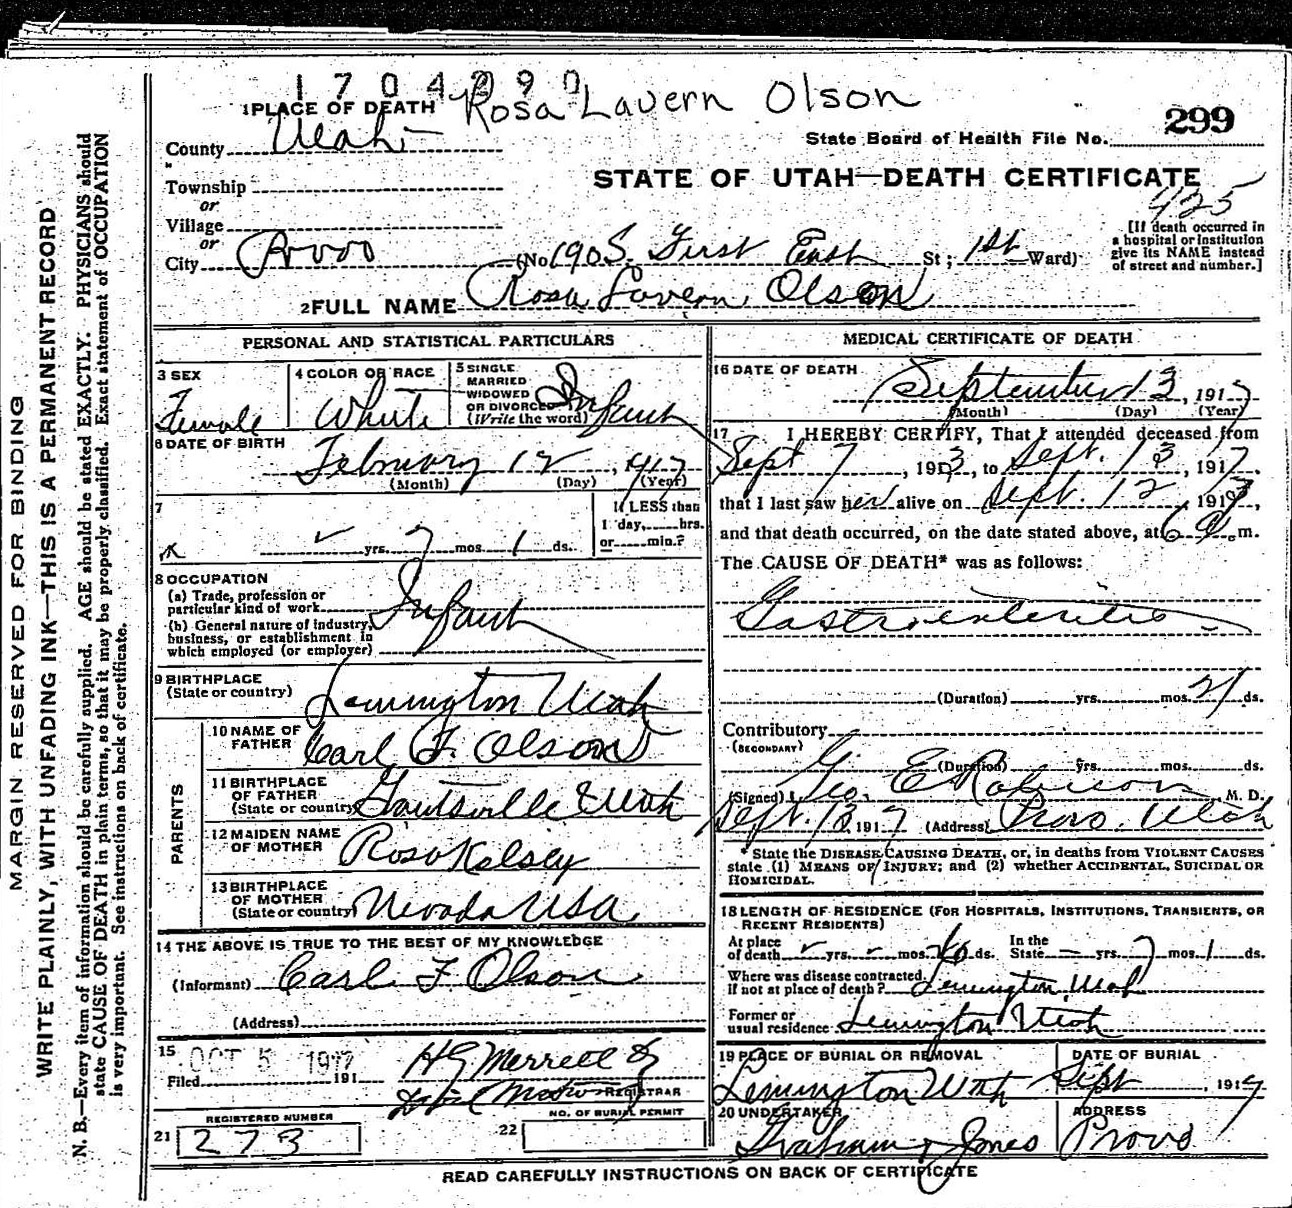 1704290
Rosa Lavern Olson
1 PLACE OF DEATH
299
State Board of Health File No.
County Utah
Township
or
STATE OF UTAH—DEATH CERTIFICATE
425
Village
or
City Provo (No. 190 S. First East St; 1st Ward)
[If death occurred in
a hospital or institution
give its NAME instead
of street and number.]
2 FULL NAME Rosa Lavern Olson
PERSONAL AND STATISTICAL PARTICULARS
3 SEX
Female
4 COLOR OR RACE
White
5 SINGLE
MARRIED
WIDOWED
OR DIVORCED
(Write the word)
Infant
6 DATE OF BIRTH
February 12, 1917
(Month) (Day) (Year)
7
yrs. 7 mos. 1 ds.
If LESS than
1 day, hrs.
or min.?
8 OCCUPATION
(a) Trade, profession or
particular kind of work
(b) General nature of industry,
business, or establishment in
which employed (or employer)
Infant
9 BIRTHPLACE
(State or country)
Lemington Utah
PARENTS
10 NAME OF
FATHER
Carl F. Olson
11 BIRTHPLACE
OF FATHER
(State or country)
Utah
12 MAIDEN NAME
OF MOTHER
Rosa Kelsey
13 BIRTHPLACE
OF MOTHER
(State or country)
Nevada USA
14 THE ABOVE IS TRUE TO THE BEST OF MY KNOWLEDGE
(Informant) Carl F Olson
(Address)
15
OCT 5 1917
Filed 191
H G Merrell
REGISTRAR
REGISTERED NUMBER
21 273
NO. OF BURIAL PERMIT
22
MEDICAL CERTIFICATE OF DEATH
16 DATE OF DEATH
September 13, 1917
(Month) (Day) (Year)
17 I HEREBY CERTIFY, That I attended deceased from
Sept 7, 191, to Sept. 13, 1917,
that I last saw her alive on Sept. 12, 1917,
and that death occurred, on the date stated above, at 6 a. m.
The CAUSE OF DEATH* was as follows:
Gastroenteritis
(Duration) yrs. mos. 21 ds.
Contributory
(SECONDARY)
(Duration) yrs. mos. ds.
(Signed) Geo. E Robison M. D.
Sept. 13 1917 (Address) Provo. Utah
* State the DISEASE CAUSING DEATH, or, in deaths from VIOLENT CAUSES
state (1) MEANS OF INJURY; and (2) whether ACCIDENTAL, SUICIDAL OR
HOMICIDAL.
18 LENGTH OF RESIDENCE (FOR HOSPITALS, INSTITUTIONS, TRANSIENTS, OR
RECENT RESIDENTS)
At place
of death yrs. mos. ds.
In the
State yrs. 7 mos. 1 ds.
Where was disease contracted,
if not at place of death? Lemington, Utah
Former or
usual residence Lemington Utah
19 PLACE OF BURIAL OR REMOVAL
Lemington Utah
DATE OF BURIAL
Sept, 1917
20 UNDERTAKER
Graham & Jones
ADDRESS
Provo
READ CAREFULLY INSTRUCTIONS ON BACK OF CERTIFICATE
MARGIN RESERVED FOR BINDING
WRITE PLAINLY, WITH UNFADING INK—THIS IS A PERMANENT RECORD
N. B.—Every item of information should be carefully supplied. AGE should be stated EXACTLY. PHYSICIANS should
state CAUSE OF DEATH in plain terms, so that it may be properly classified. Exact statement of OCCUPATION
is very important. See instructions on back of certificate.